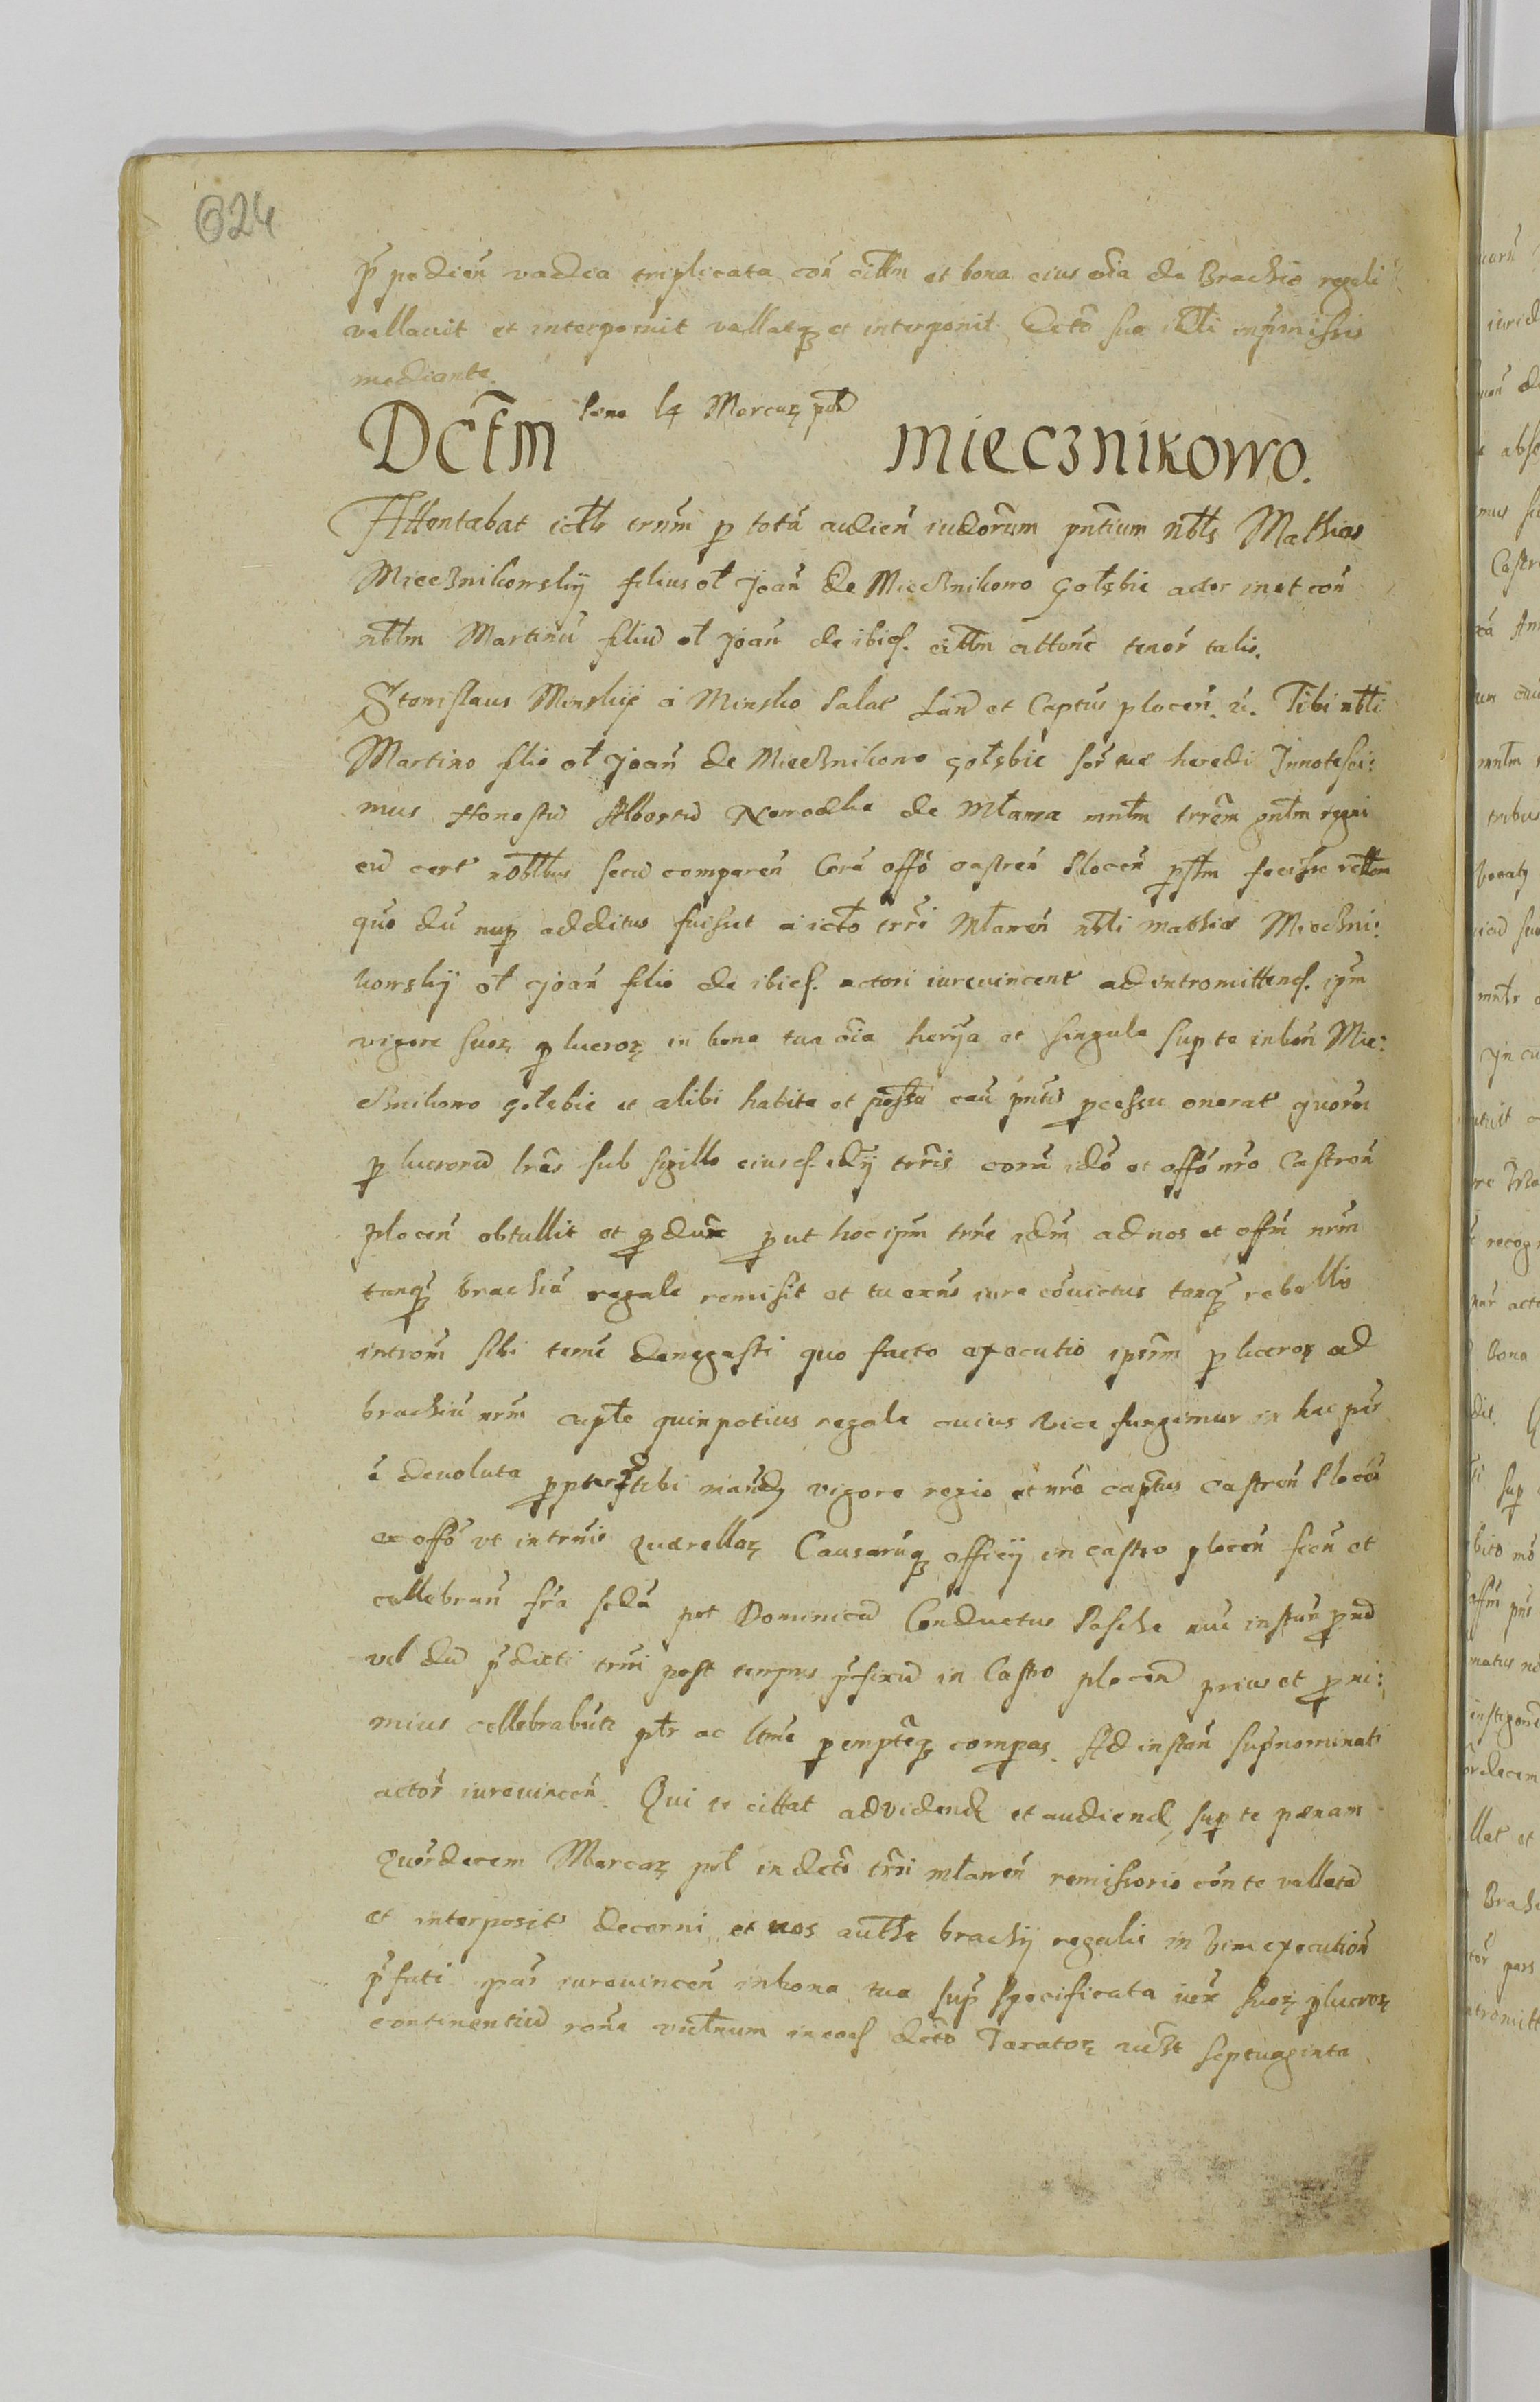 624
p̃pedień vadia triplicata coń cittm et bona eius oĩa de Brachio regali
vallavit et interposuit vallatq; et interponit Dcto suo ictti inp̃missis
mediante.
Dctm pena 14 Marcar; pol miecznikowo.
Attentabat ictlr trnm p totã audień iudorum pntium nbls Mathias
Miecznikowskij filius ol Joań de Miecznikowo Gołębie actor inet coń
nblm Martinũ filiũ ol Joań de ibid. cittm actione tenor talis.
Stanislaus Minskij a Minsko Palat Land et Captus plocen. &. Tibi nbli
Martino filio ol Joań de Miecznikowo gołębie sor tuæ heredi Innotesci:
mus Honestũ Albertũ Nawodka de Mława mntlm trrem pntlm regni
cũ cert nobllbus secũ comparen Corã offo castren Plocen pstlm fecisse rctlem
quo dũ nup additus fuisset a icto trri Mławen nbli Mathiæ Mieczni:
kowskij ol Joań filio de ibid. actori iurevincent ad intromittend. ipm
vigore suor; p lucror; in bona tua oia her̃ia et singula sup te inbon Mie:
cznikowo gołębie et alibi habita et possa cau pntis pcessu onerat quorũ
p lucrorũ lras sub sigillo eiusd. idij trris corã ido et offo nro Castren
plocen obtullit et pduxit put hoc ipm trre idm ad nos et offm nrm
tanq; brachiũ regale remisit et tu exńs iure cõvictus tanq; rebellis
introm̃ sibi teme denegasti quo facto executio ipsrm p lucror; ad
brachiũ nrm capte quinpotius regale cuius vice fungimur in hac par
ẽ devoluta ppterea tibi mandam; vigore regio et nro captus castren Plocen
ex offo vt in trnis Querellar; Causarũq; officij in castro plocen fien et
cellebran fra scdã pot Dominicã Conductus Paschæ nũc instan pxĩe
vel dũ p̃dicti trni post tempus p̃fixũ in Castro plocen prius et pxi:
mius cellebrabũt ptr ac ltme pempteq; compas. Ad instan supnominati
actor iurevincen. Qui te cittat ad vidend et audiend sup te pænam
Quordecem Marcar; pol in dcto trri mławen remissorio con te vallatã
et interposit decerni et nos authæ brachij regalis in vim execution
p̃fati par iurevincen in bona tua sup specificata iux suor; p lucror;
continentiũ rone victrum in eod dcto Taxator; vidzt septuaginta